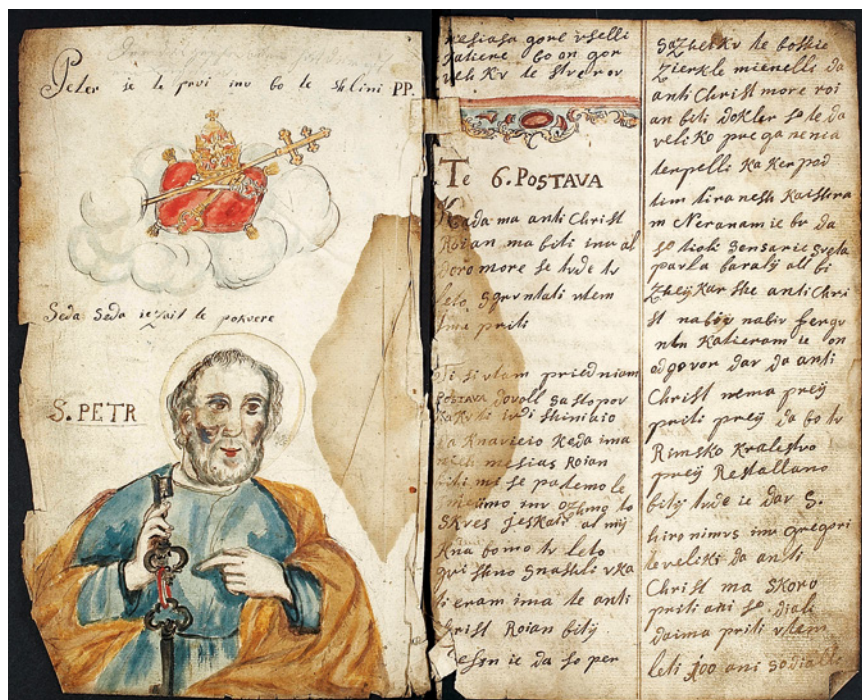 Peter ie te prvi inv bo te shlini PP.
Seda Seda iezhit te pokvere
S. PETR
mesiasa gore vselli
katiere bo on gor
veh kv te stvrov
Te 6. POSTAVA
Kada ma anti Christ
Roian ma biti inv al
Doro more se tvde tv
leto sgrvntati vtem
Ima priti
Ti si vtam priedniam
POSTAVA dovoll sastopov
kakv ti ivdi shiniaio
da knavicio Keda ima
nieh mesias Roian
biti mi se patemo le
meiimo inv ozhmo to
skres jeskati al mij
kna bomo tv leto
gvishno snashli vka
tieram ima te anti
Christ Roian bitÿ
resen ie da so per
sazhetkv te boshie
Zierkle mienelli da
anti Christ more roi
an biti dokler so te da
veliko preganenia
terpelli kaker pod
tem tiranesh Kaisera
m Neranam ie bv da
so tioti sensarie sveta
pavla baralÿ all bi
Zheÿ kar she anti Chri
st nabiÿ nabiv fergv
ntn katieram ie on
odgovor dav da anti
Christ nema preÿ
priti preÿ da bo tv
Rimsko Kralestvo
preÿ Restallano
bitÿ tvde ie dav S.
hironimvs inv gregori
te veliki da anti
Christ ma skoro
priti ani so diali
daima priti vtem
leti 400 ani so dialli